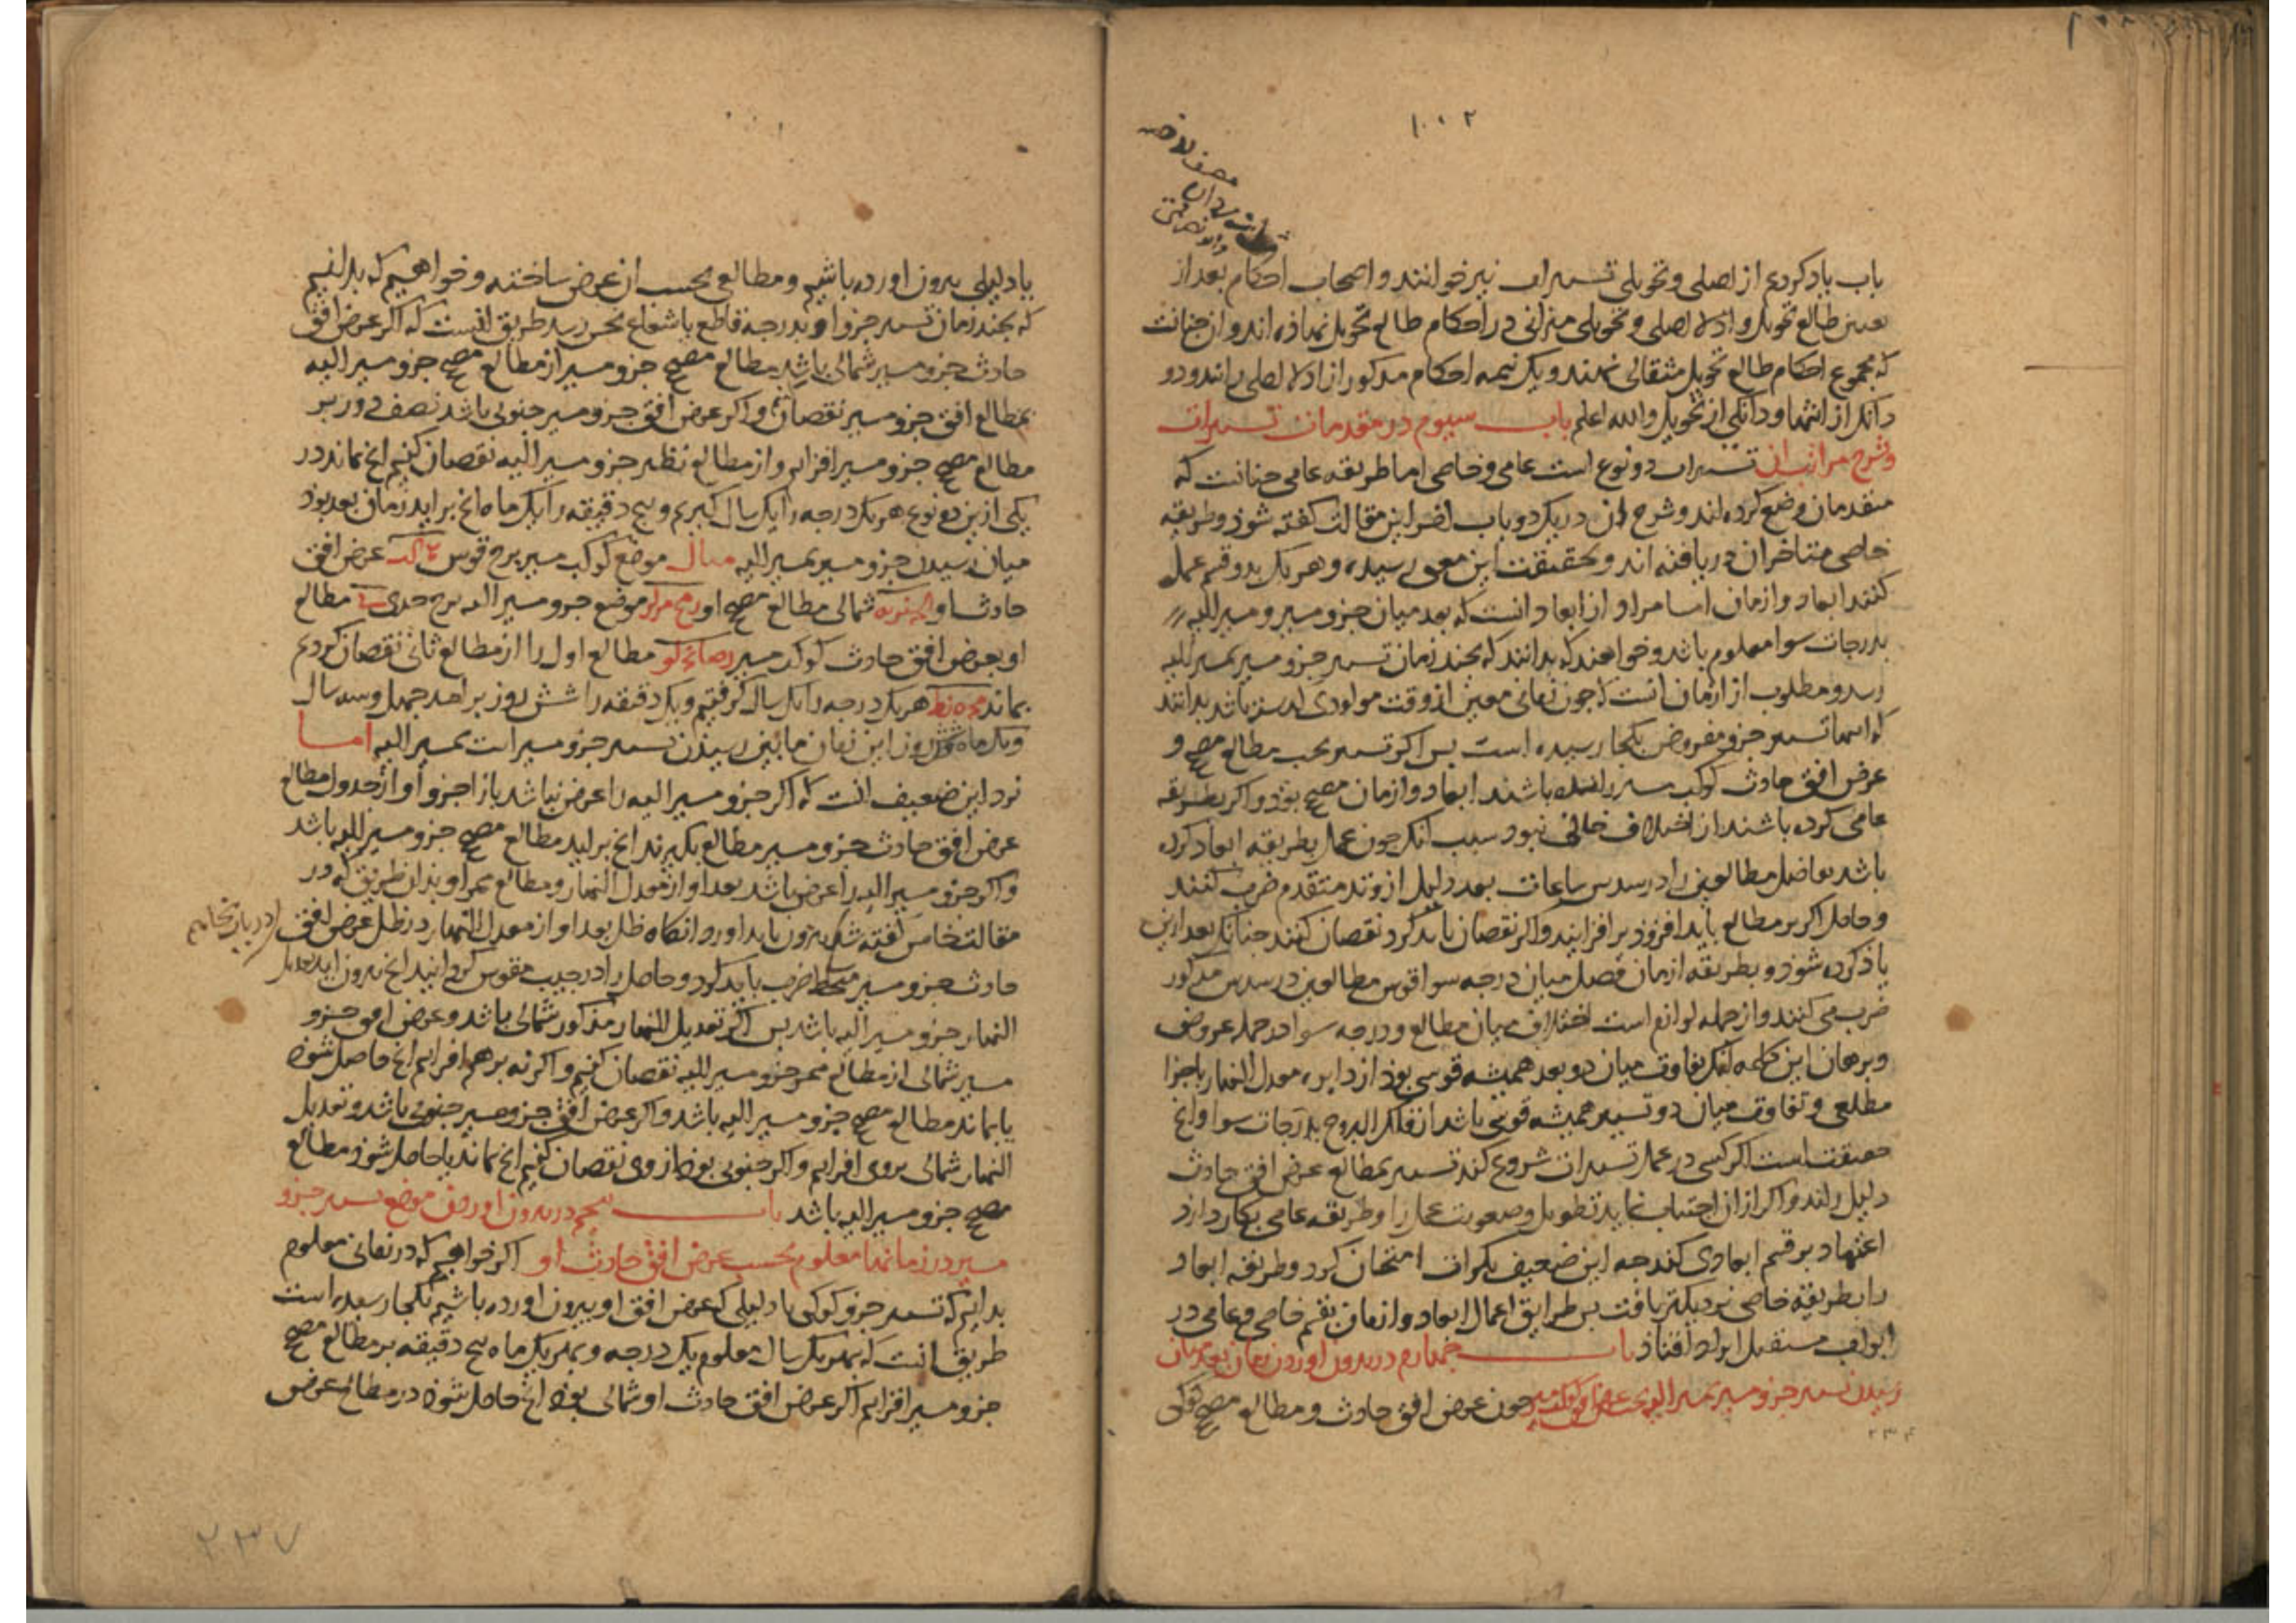 ۱۰۰۲
باب یاد کردیم از اصلی و تحویلی تسییرات نیز خوانند و اصحاب احکام بعد از
تعیین طالع تحویل و ادلاء اصلی و تحویلی میزانی در احکام طالع تحویل نهاذه اند و از جنانست
که مجموع احکام طالع تحویل مثقالی نهند و یک نیمه احکام مذکور از ادلاء اصلی دانند و دو
دانک از انتها و دانکی از تحویل والله اعلم باب سیوم در مقدمات تسییرات
و شرح مراتب ان تسییرات دو نوع است عامی و خاصی اما طریقه عامی جنانست که
متقدمان وضع کرده اند و شرح ان در یک دو باب اخر این مقالت کفته شوذ و طریقه
خاصی متاخران دریافته اند و بحقیقت این معنی رسیده و هر یک بدو قسم عمل
کنند ابعاد و ازمان اما مراد از ابعاد انست که بعد میان جزو مسیر و مسیر الیه
بدرجات سوا معلوم باشد و خواهند که بدانند که بجند زمان تسییر جزو مسیر بمسیر الیه
رسد و مطلوب از ازمان انست که جون زمانی معین از وقت مولودی باشد بدانند
که تسییر جزو مفروض بکجا رسیده است بس اکر تسییر بحسب مطالع مصحح و
عرض افق حادث کوکب مسیر رانده باشند ابعاد و ازمان مصحح بوذ و اکر بطریقه
عامی کرده باشند از اختلاف خالی نبود سبب انک جون عمل بطریقه ابعاد کرده
باشد تفاضل مطالعین را در سدس ساعات بعد دلیل از وتد متقدم ضرب کنند
و حاصل اکر بر مطالع باید افزوذ بر افزایند و اکر نقصان باید کرد نقصان کنند جنانک بعد ازین
یاذ کرده شوذ و بطریقه ازمان فصل میان درجه سوا قوس مطالعین در سدس مذکور
ضرب می کنند و از جمله لوازم است اختلاف میان مطالع و درجه سوا در جمله عروض
و برهان این کلمه انک تفاوت میان دو بعد همیشه قوسی بوذ از دایره معدل النهار باجزا
مطلعی و تفاوت میان دو تسییر همیشه قوسی باشد از فلک البروج بدرجات سوا و انج
حقیقت است اکر کسی در عمل تسییرات شروع کند تسییر بمطالع عرض افق حادث
دلیل راند و اکر از ان اجتناب نماید تطویل و صعوبت عمل را و طریقه عامی بکار دارد
اعتماد بر قسم ابعادی کند جه این ضعیف بکرات امتحان کرد و طریقه ابعاد
را بطریقه خاصی نزدیکتر یافت بس طرایق اعمال ابعاد و ازمان بقسم خاصی و عامی در
ابواب مستقبل ایراد افتاذ باب جهارم در بیرون اوردن زمان بعد میان
رسیدن تسییر جزو مسیر بمسیر الیه بحسب عرض افق جون عرض افق حادث و مطالع مصحح کوکبی
۲۳۶
یا دلیلی بیرون اورده باشیم و مطالعی بحسب ان عرض ساخته و خواهیم که بدانیم
که بجند زمان تسییر جزو او بدرجه قاطع یا شعاع نحس رسد طریق انست که اکر عرض افق
حادث جزو مسیر شمالی باشد مطالع مصحح جزو مسیر از مطالع مصحح جزو مسیر الیه
بمطالع افق جزو مسیر نقصان و اکر عرض افق جزو مسیر جنوبی باشد نصف دور بر
مطالع مصحح جزو مسیر افزایم و از مطالع نظیر جزو مسیر الیه نقصان کنیم انج بماند در
یکی ازین دو نوع هر یک درجه را یک سال کیریم و پنج دقیقه را یک ماه انج براید زمان بعد بوذ
میان رسیدن جزو مسیر بمسیر الیه مثال موضع کوکب مسیر برج قوس عرض افق
حادث او شمالی مطالع مصحح او موضع جزو مسیر الیه برج جدی مطالع
او بعرض افق حادث کوکب مسیر مطالع اول را از مطالع ثانی نقصان کردیم
بماند هر یک درجه را یک سال کرفتیم و یک دقیقه را شش روز برامد جهل و سه سال
و یک ماه روز این زمان مابین رسیذن تسییر جزو مسیر است بمسیر الیه اما
نزد این ضعیف انست که اکر جزو مسیر الیه را عرض نباشد بازا جزو او از جدول مطالع
عرض افق حادث جزو مسیر مطالع بکیرند انج براید مطالع مصحح جزو مسیر الیه باشد
و اکر جزو مسیر الیه را عرض باشد بعد او از معدل النهار و مطالع ممر او بذان طریق که در
مقالت خامس کفته شد بیرون باید اورد و انکاه ظل بعد او از معدل النهار در ظل عرض افق
حادث جزو مسیر منحط ضرب باید کرد و حاصل را در جیب مقوس کردانید انج بیرون اید تعدیل
النهار جزو مسیر الیه باشد بس اکر تعدیل النهار مذکور شمالی باشد و عرض افق جزو
مسیر شمالی از مطالع ممر جزو مسیر الیه نقصان کنیم و اکر نه بر هم افزایم انج حاصل شوذ
یا بماند مطالع مصحح جزو مسیر الیه باشد و اکر عرض افق جزو مسیر جنوبی باشد و تعدیل
النهار شمالی بروی افزایم و اکر جنوبی بوذ ازوی نقصان کنیم انج بماند یا حاصل شوذ مطالع
مصحح جزو مسیر الیه باشد باب پنجم در بیرون اوردن موضع تسییر جزو
مسیر در زمانها معلوم بحسب عرض افق حادث او اکر خواهیم که در زمانی معلوم
بدانیم که تسییر جزو کوکبی یا دلیلی که عرض افق او بیرون اورده باشیم بکجا رسیده است
طریق انست که بهر یک سال معلوم یک درجه و بهر یک ماه پنج دقیقه بر مطالع مصحح
جزو مسیر افزایم اکر عرض افق حادث او شمالی بوذ انج حاصل شوذ در مطالع عرض
۲۳۷